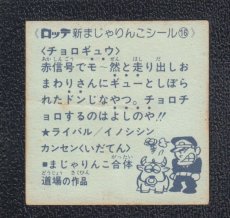 ロッテ新まじゃりんこシール⑯
〈チョロギュウ〉
赤信号でモ〜然と走り出しお
まわりさんにギューとしぼら
れたドンじなやつ。チョロチ
ョロするのはよしのや!!
★ライバル/イノシシン
カンセン〈いだてん〉
■まじゃりんこ合体
道場の作品